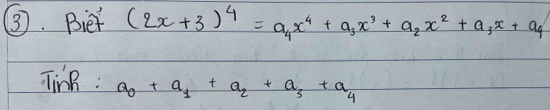 ③. Biết (2x+3)⁴ = a₄x⁴ + a₃x³ + a₂x² + a₃x + a₄
Tính : a₀ + a₁ + a₂ + a₃ + a₄